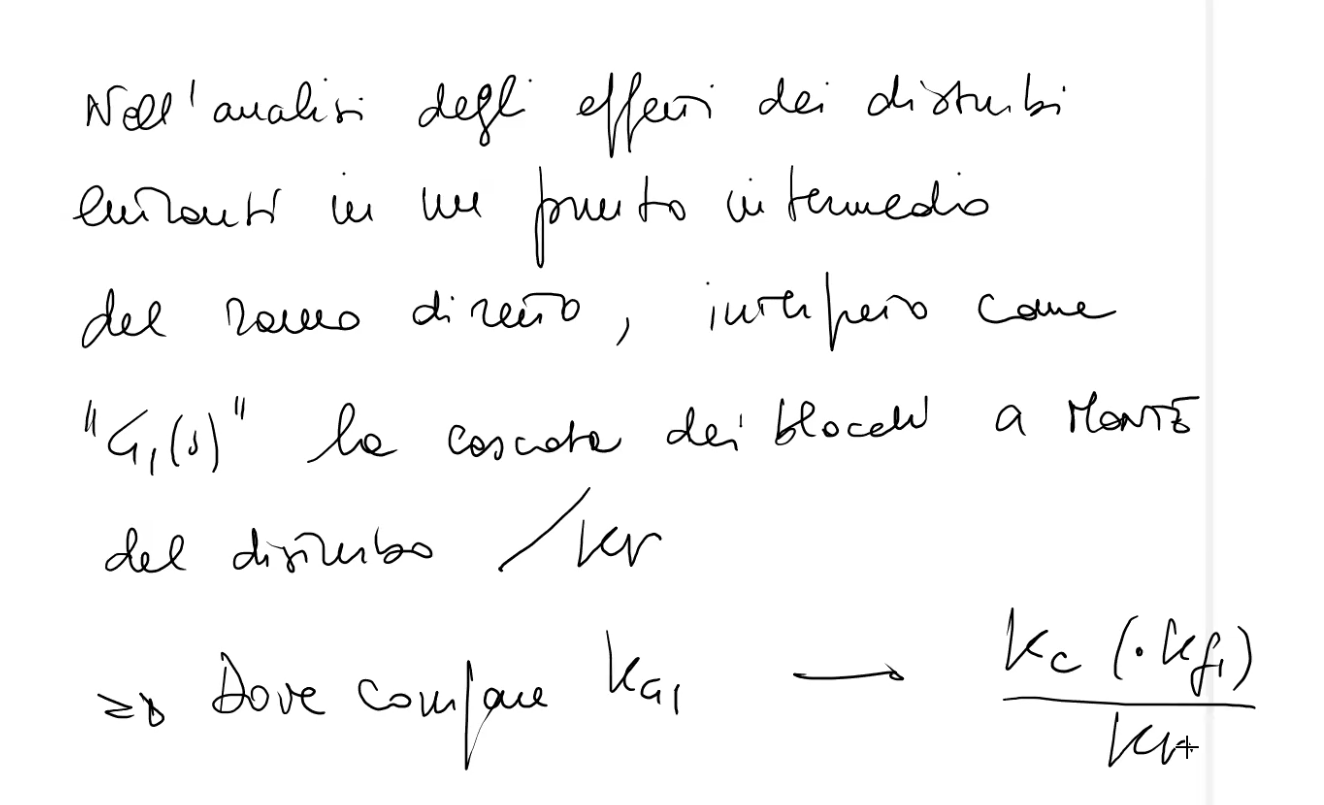 Nell'analisi degli effetti dei disturbi
entranti in un punto intermedio
del ramo diretto, interpreto come
"G₁(s)" la cascata dei blocchi a MONTE
del disturbo / Kr
=> Dove compare K_G₁ → K_c (· K_f₁) / K_r